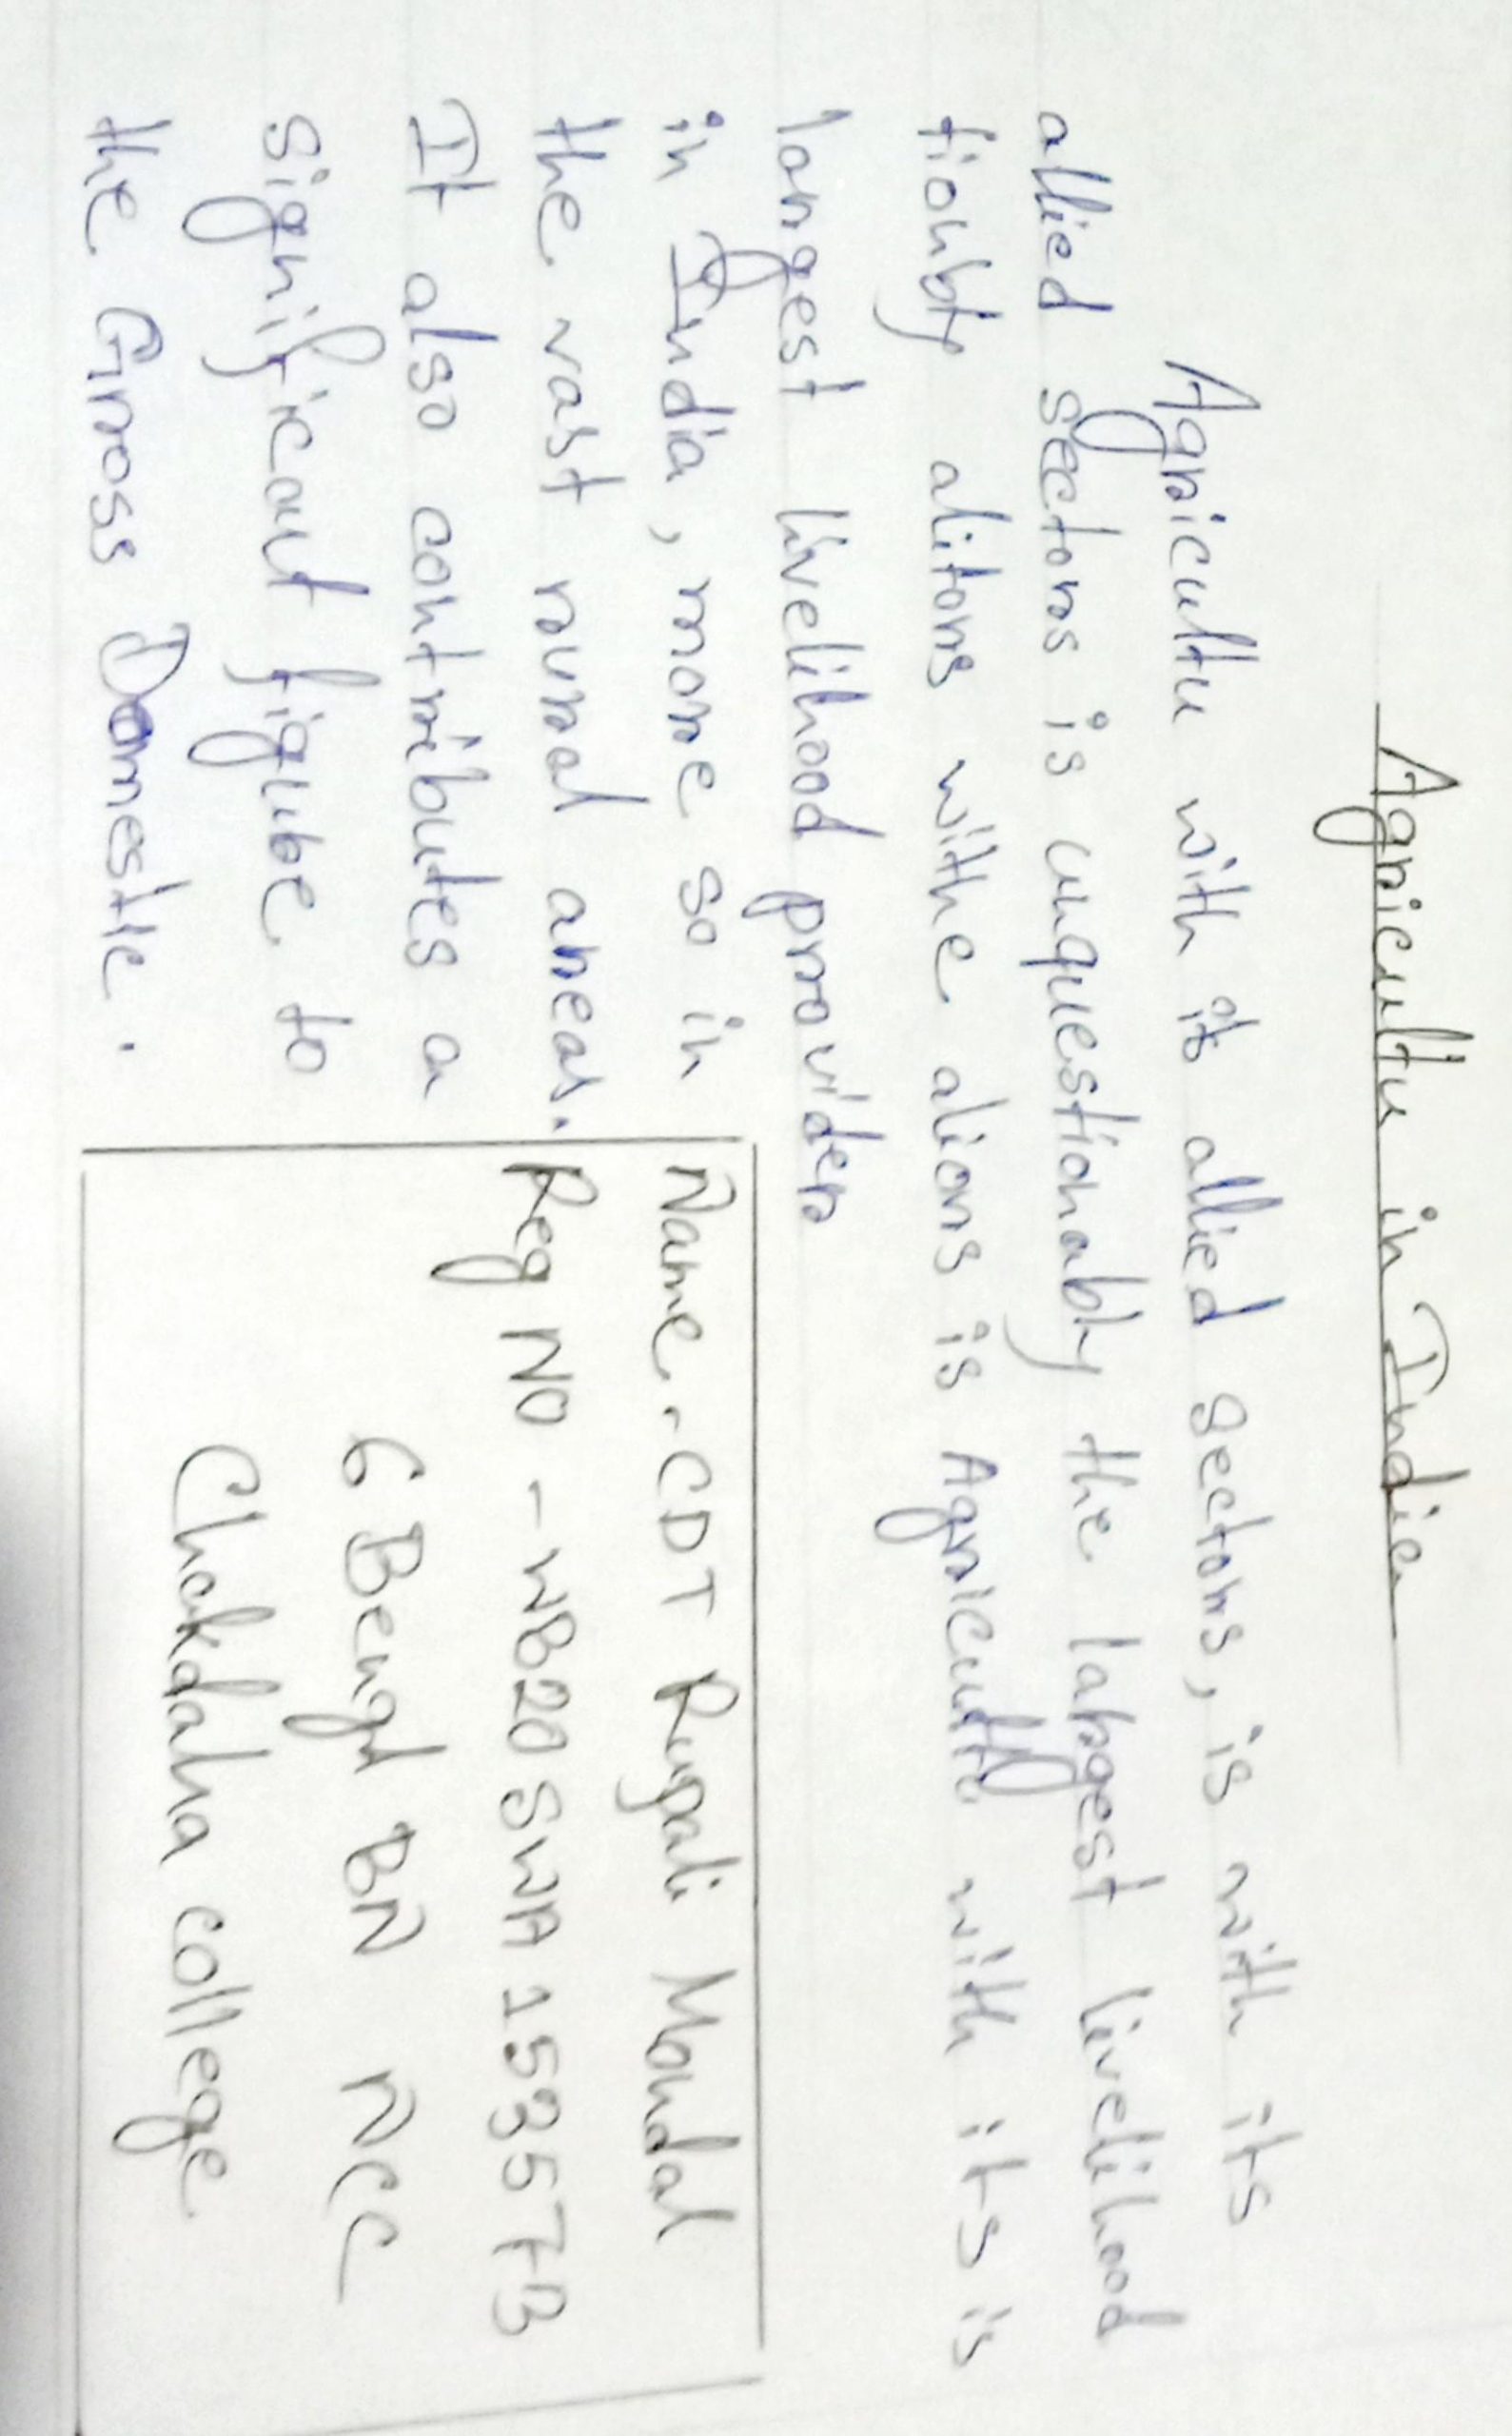 Agricultu in India
Agricultu with it's allied sectors, is with its
allied sectors is unquestionably the largest livelihood
tionbty alitors withe alions is Agricultu with its is
largest livelihood provider
in India, more so in
the vast rural areas.
It also contributes a
significant figure to
the Gross Domestic.
Name - CDT Rupali Mondal
Reg NO - WB20SWA153573
6 Bengal BN NCC
Chakdaha college